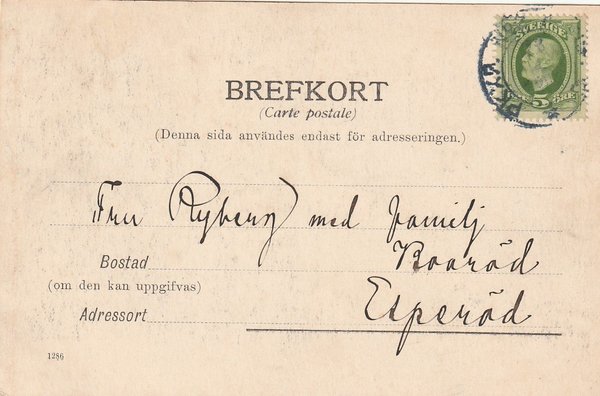 SVERIGE
5 ÖRE
BREFKORT
(Carte postale)
(Denna sida användes endast för adresseringen.)
Fru Ryberg med familj
Bostad Boaröd
(om den kan uppgifvas)
Adressort Esperöd
1286